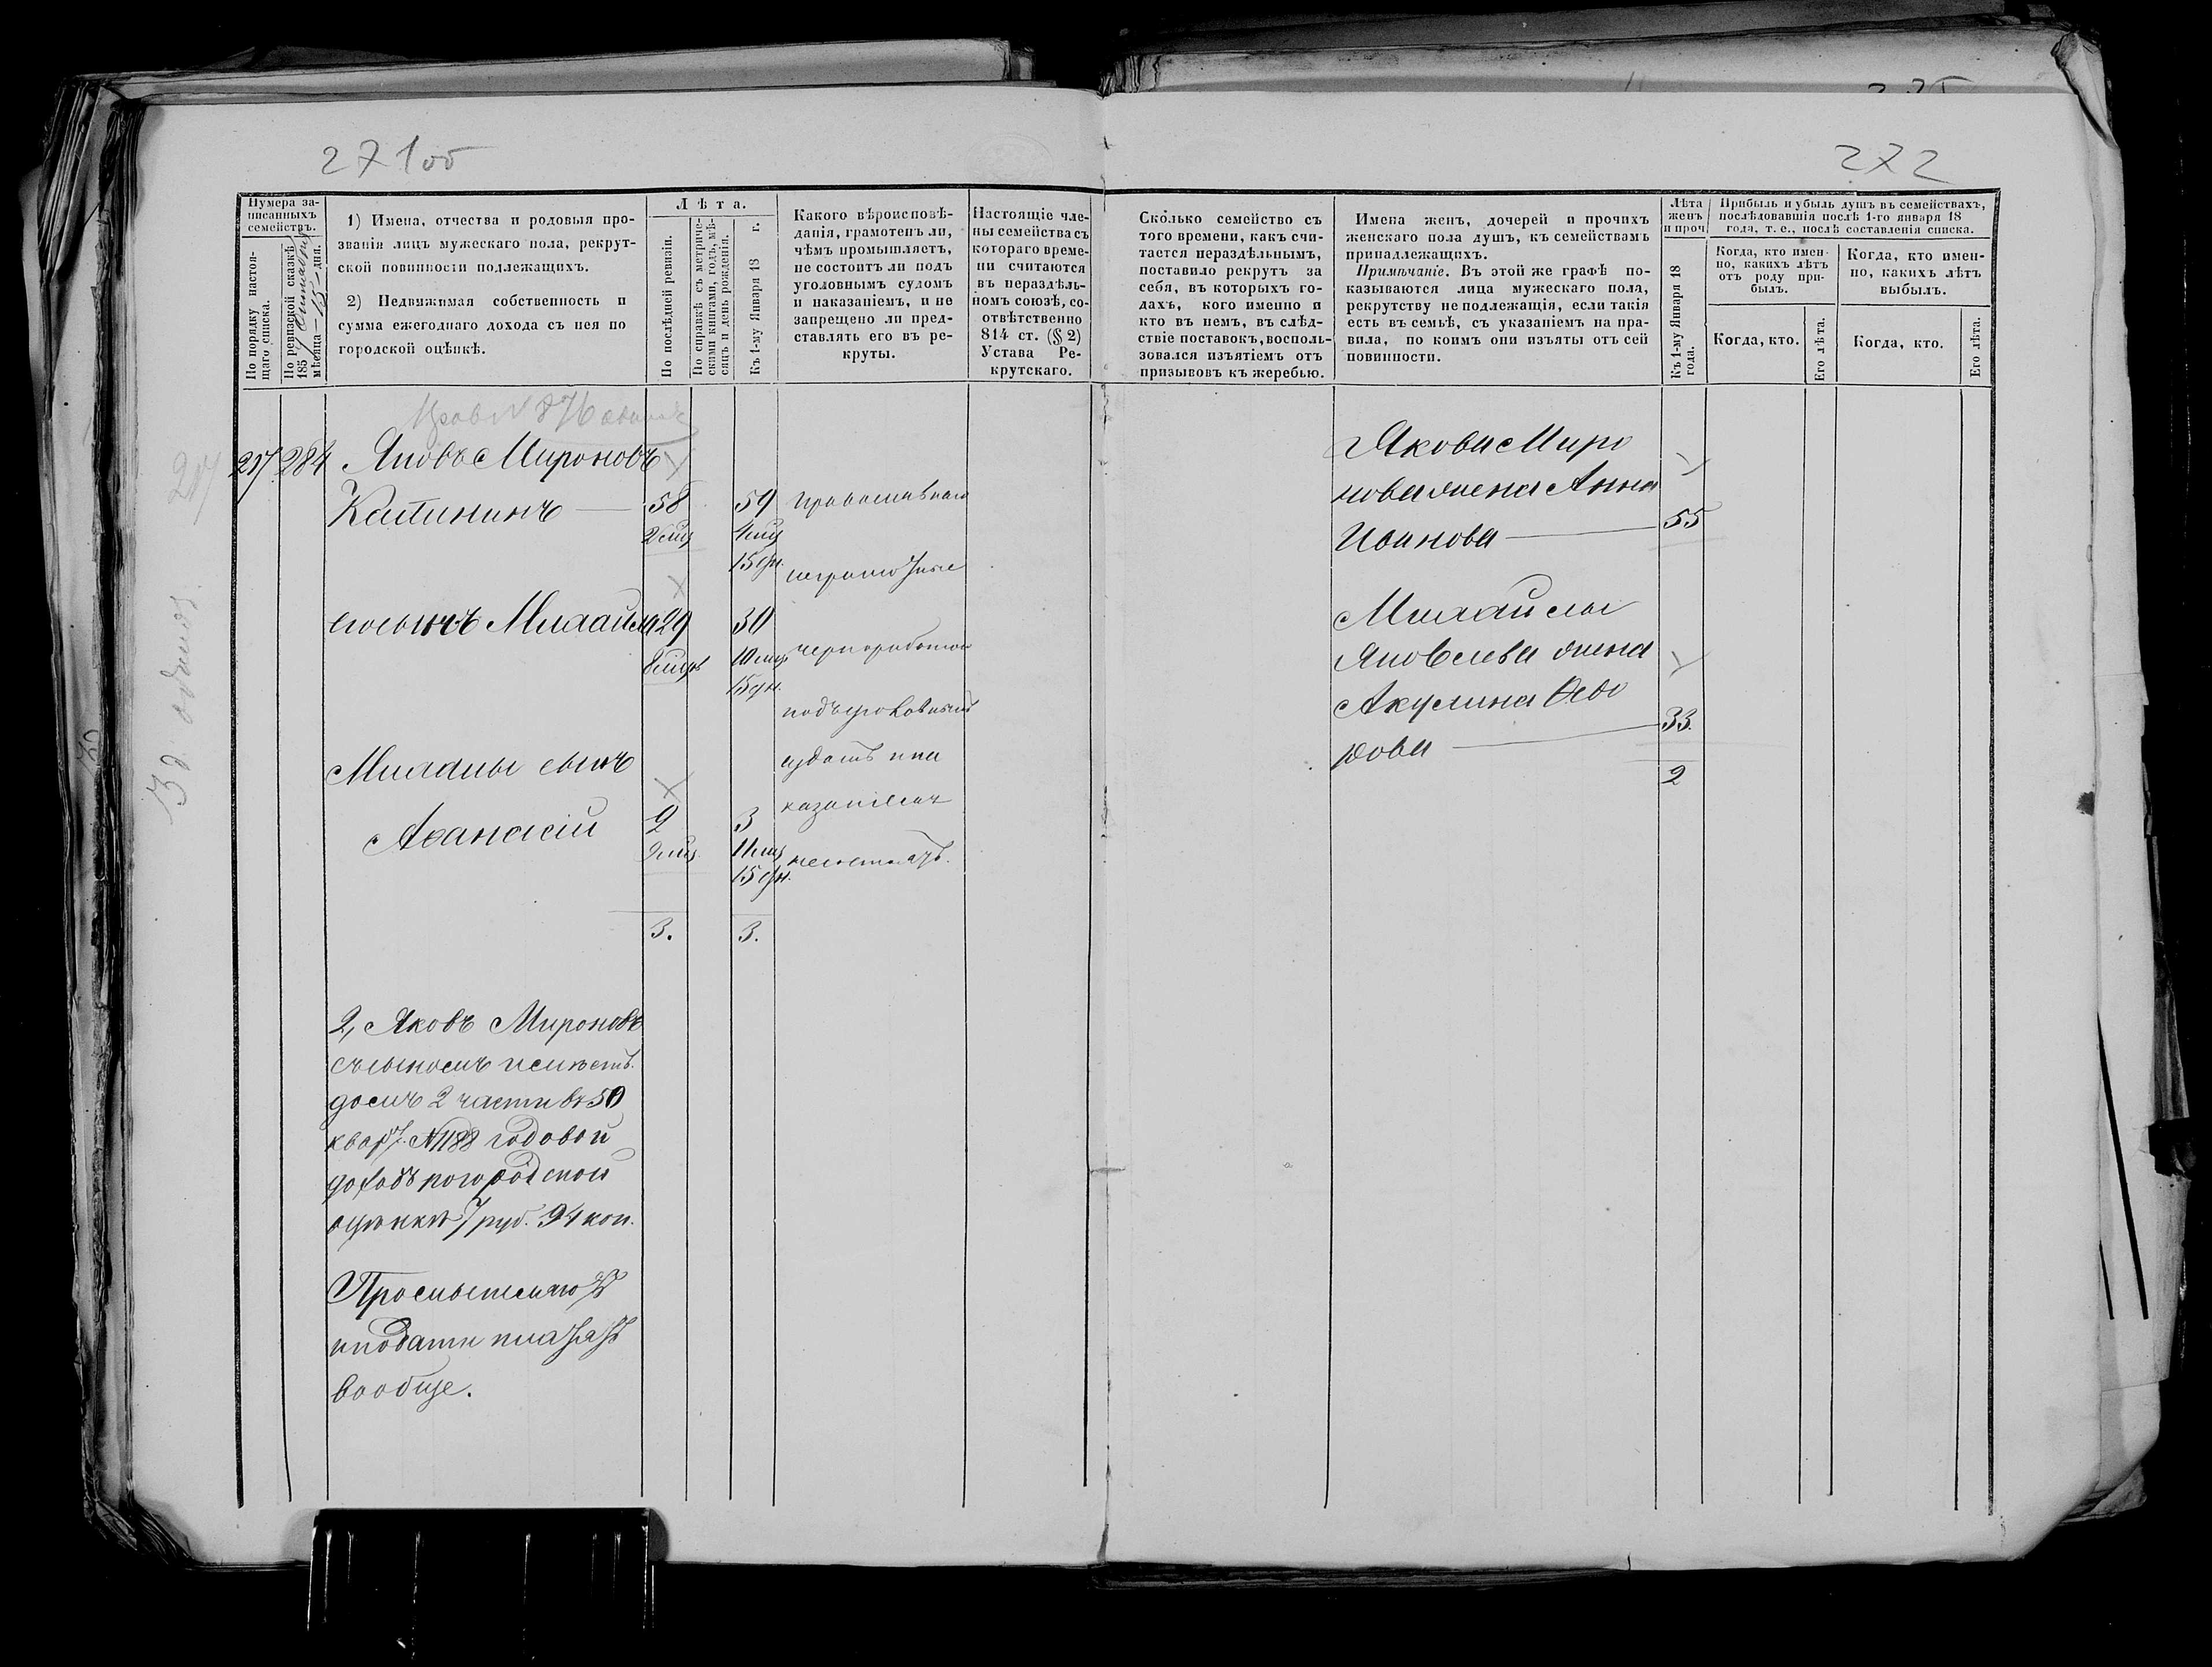 271об
272
Нумера за-
писанныхъ
семействъ.
По порядку настоя-
щаго списка.
По ревизской сказкѣ
185 7 Октября
мѣсяца — 15 — дня.
1) Имена, отчества и родовыя про-
званія лицъ мужескаго пола, рекрут-
ской повинности подлежащихъ.
2) Недвижимая собственность и
сумма ежегоднаго дохода съ нея по
городской оцѣнкѣ.
Лѣта.
По послѣдней ревизіи.
По справкѣ съ метриче-
скими книгами, годъ, мѣ-
сяцъ и день рожденія.
Къ 1-му Января 18 г.
Какого вѣроисповѣ-
данія, грамотенъ ли,
чѣмъ промышляетъ,
не состоитъ ли подъ
уголовнымъ судомъ
и наказаніемъ, и не
запрещено ли пред-
ставлять его въ ре-
круты.
Настоящіе чле-
ны семейства съ
котораго време-
ни считаются
въ нераздѣль-
номъ союзѣ, со-
отвѣтственно
814 ст. (§ 2)
Устава Ре-
крутскаго.
Сколько семейство съ
того времени, какъ счи-
тается нераздѣльнымъ,
поставило рекрутъ за
себя, въ которыхъ го-
дахъ, кого именно и
кто въ немъ, въ слѣд-
ствіе поставокъ, восполь-
зовался изъятіемъ отъ
призывовъ къ жеребью.
Имена женъ, дочерей и прочихъ
женскаго пола душъ, къ семействамъ
принадлежащихъ.
Примѣчаніе. Въ этой же графѣ по-
казываются лица мужескаго пола,
рекрутству не подлежащія, если такія
есть въ семьѣ, съ указаніемъ на пра-
вила, по коимъ они изъяты отъ сей
повинности.
Лѣта
женъ
и проч
Къ 1-му Января 18
года.
Прибыль и убыль душъ въ семействахъ,
послѣдовавшія послѣ 1-го января 18
года, т. е., послѣ составленія списка.
Когда, кто имен-
но, какихъ лѣтъ
отъ роду при-
былъ.
Когда, кто имен-
но, какихъ лѣтъ
выбылъ.
Когда, кто.
Его лѣта.
Когда, кто.
Его лѣта.
№ 876
217 217 284 Яковъ Мироновъ
Катининъ — 58 59 православнаго
2 мщ 4 мщ
15 дн. неграмотные
его сынъ Михайла 29 30
8 мщъ 10 мщ чернорабочіе
15 дн.
подъ уголовнымъ
судомъ и на
Михайлы сынъ
казаніемъ
Афанасій 2 3
2 мщ. 11 мщ не состоятъ.
15 дн.
3. 3.
2, Яковъ Мироновъ
съ сыномъ имѣетъ
домъ 2 части въ 50
кварт. №1188 годовой
доходъ по городской
оцѣнкѣ 7 руб. 94 коп.
и подати платятъ
вообще.
Якова Миро
нова жена Анна
Иванова — 55
Михайлы
Яковлева жена
Акулина Ѳедо
рова — 33.
2